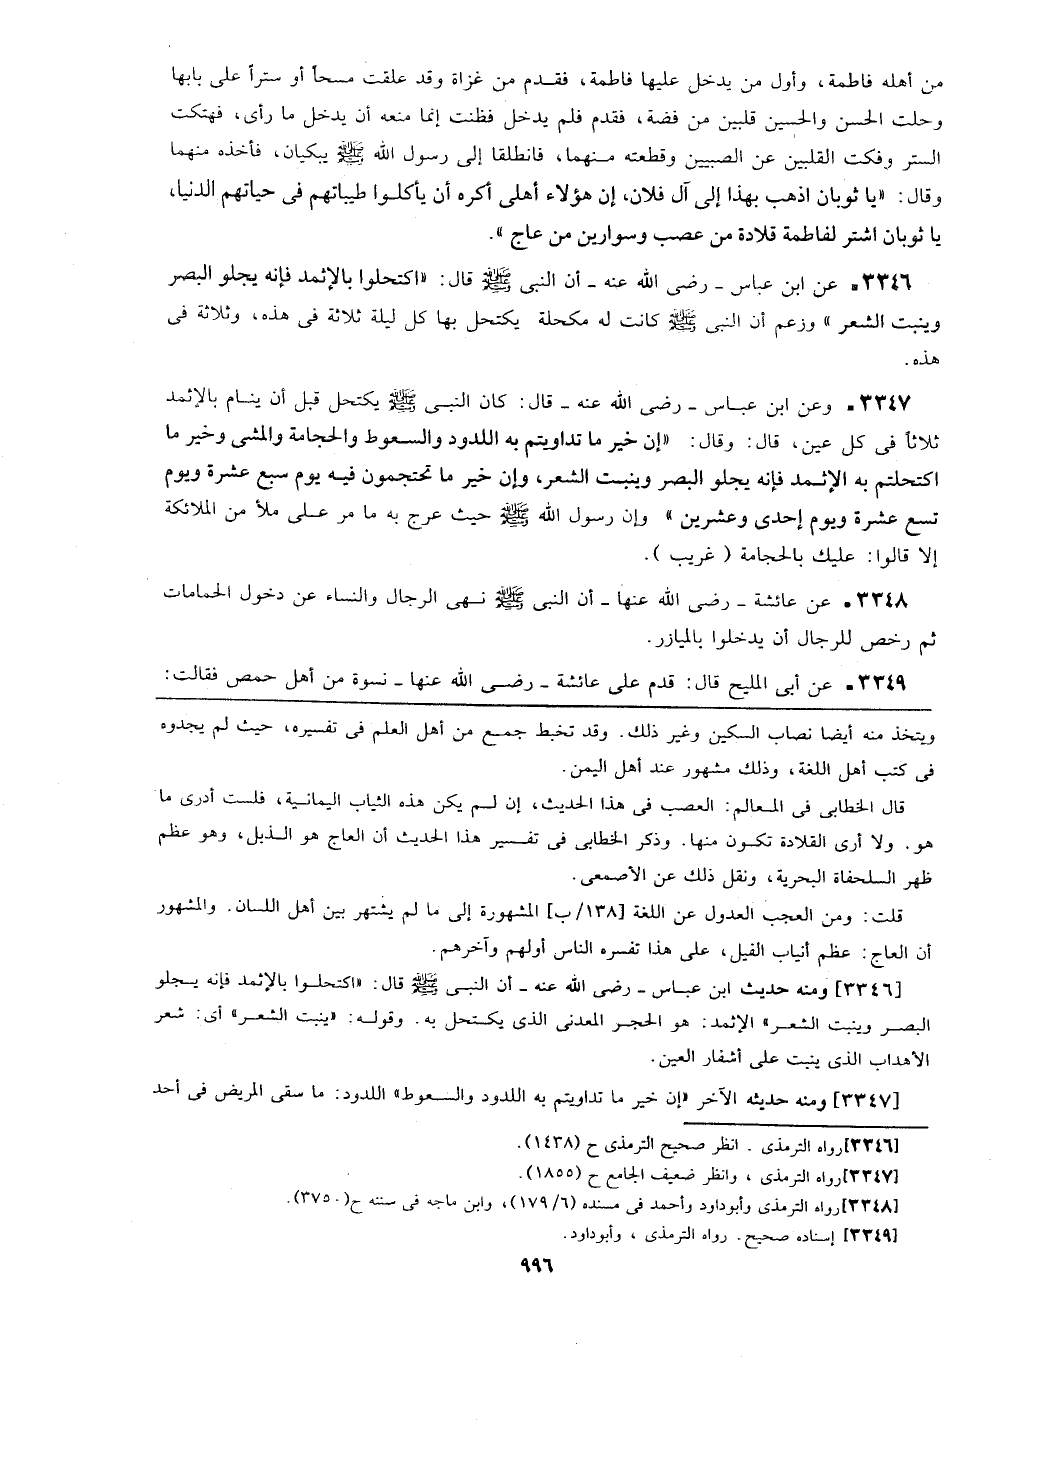 من أهله فاطمة، وأول من يدخل عليها فاطمة، فقـدم من غزاة وقد علقت مسحاً أو ستراً على بابها
وحلت الحسن والحسين قلبين من فضة، فقدم فلم يدخل فظنت إنما منعه أن يدخل ما رأى، فهتكت
الستر وفكت القلبين عن الصبيين وقطعته منهما، فانطلقا إلى رسول الله ﷺ يبكيان، فأخذه منهما
وقال: «يا ثوبان اذهب بهذا إلى آل فلان، إن هؤلاء أهلى أكره أن يأكلـوا طيباتهم فى حياتهم الدنيا،
يا ثوبان اشتر لفاطمة قلادة من عصب وسوارين من عاج».
٣٣٤٦. عن ابن عباس ـ رضى الله عنه ـ أن النبى ﷺ قال: «اكتحلوا بالإثمد فإنه يجلو البصر
وينبت الشعر» وزعم أن النبى ﷺ كانت له مكحلة يكتحل بها كل ليلة ثلاثة فى هذه، وثلاثة فى
هذه.
٣٣٤٧. وعن ابن عبـاس ـ رضى الله عنه ـ قال: كان النبـى ﷺ يكتحل قبل أن ينـام بالإثمد
ثلاثاً فى كل عين، قال: وقال: «إن خير ما تداويتم به اللدود والسـعوط والحجامة والمشى وخير ما
اكتحلتم به الإثـمد فإنه يجلو البصر وينبـت الشعر، وإن خير ما تحتجمون فيـه يوم سبع عشرة ويوم
تسع عشرة ويوم إحدى وعشرين» وإن رسول الله ﷺ حيث عرج به ما مر عـلى ملأ من الملائكة
إلا قالوا: عليك بالحجامة (غريب).
٣٣٤٨. عن عائشة ـ رضى الله عنها ـ أن النبى ﷺ نـهى الرجال والنساء عن دخول الحمامات
ثم رخص للرجال أن يدخلوا بالميازر.
٣٣٤٩. عن أبى المليح قال: قدم على عائشة ـ رضـى الله عنها ـ نسوة من أهل حمص فقالت:
ويتخذ منه أيضا نصاب السكين وغير ذلك. وقد تخبط جمـع من أهل العلم فى تفسيره، حيث لم يجدوه
فى كتب أهل اللغة، وذلك مشهور عند أهل اليمن.
قال الخطابى فى المـعالم: العصب فى هذا الحديث، إن لـم يكن هذه الثياب اليمانـية، فلست أدرى ما
هو. ولا أرى القلادة تكـون منها. وذكر الخطابى فى تفـسير هذا الحديث أن العاج هو الـذبل، وهو عظم
ظهر السلحفاة البحرية، ونقل ذلك عن الأصمعى.
قلت: ومن العجب العدول عن اللغة [١٣٨/ب] المشهورة إلى ما لم يشتهر بين أهل اللسان. والمشهور
أن العاج: عظم أنياب الفيل، على هذا تفسره الناس أولهم وآخرهم.
[٣٣٤٦] ومنه حديث ابن عبـاس ـ رضى الله عنه ـ أن النبـى ﷺ قال: «اكتحلـوا بالإثمد فإنه يـجلو
البصـر وينبت الشعـر» الإثمد: هو الحجر المعدنى الذى يكـتحل به. وقولـه: «ينبت الشعـر» أى: شعر
الأهداب الذى ينبت على أشفار العين.
[٣٣٤٧] ومنه حديثه الآخر «إن خير ما تداويتم به اللدود والسـعوط» اللدود: ما سقى المريض فى أحد
[٣٣٤٦]رواه الترمذى . انظر صحيح الترمذى ح (١٤٣٨).
[٣٣٤٧]رواه الترمذى ، وانظر ضعيف الجامع ح (١٨٥٥).
[٣٣٤٨]رواه الترمذى وأبوداود وأحمد فى مسنده (١٧٩/٦)، وابن ماجه فى سننه ح(٣٧٥٠).
[٣٣٤٩] إسناده صحيح. رواه الترمذى ، وأبوداود.
٩٩٦